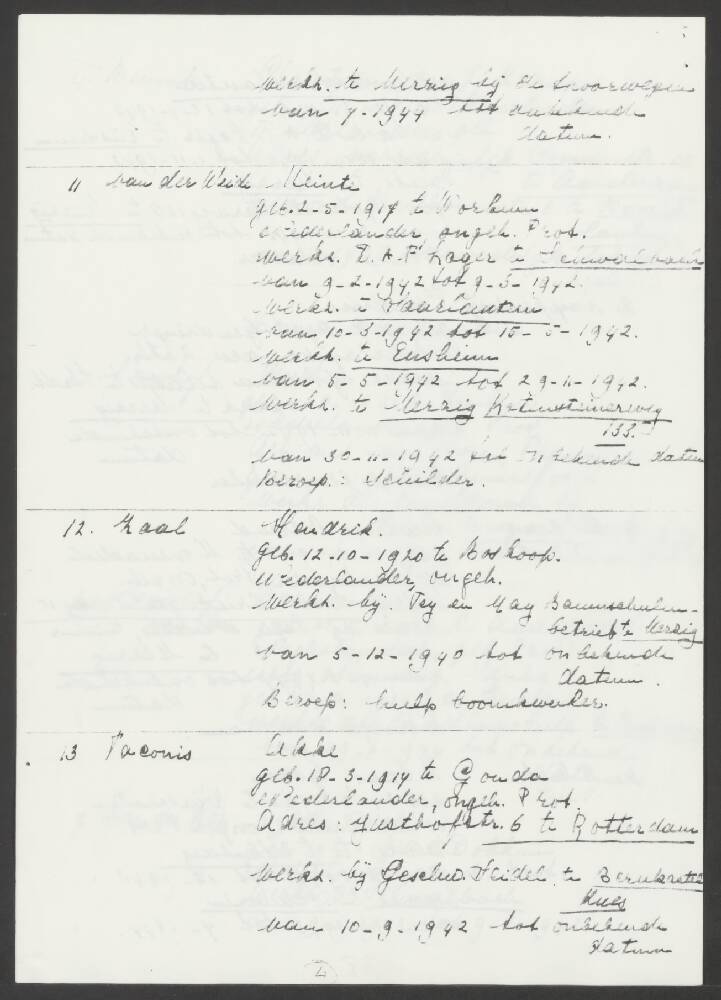 Werkz. te Merzig bij de
van 7-1944 tot onbekende
datum.
11 van der Weide Meinte
geb. 2-5-1917 te Workum
Nederlander ongeh. Prot.
Werkz. D.A.F. Lager te
van 9-2-1942 tot 9-3-1942.
Werkz. te Saarlautern
van 10-3-1942 tot 15-5-1942.
Werkz. te Ensheim
van 5-5-1942 tot 29-11-1942.
Werkz. te Merzig
133.
van 30-11-1942 tot onbekende datum
Beroep: Schilder.
12. Zaal Hendrik.
geb. 12-10-1920 te Boskoop.
Nederlander, ongeh.
Werkz. bij. Tey en May Baumschulen-
betrieb te Merzig
van 5-12-1940 tot onbekende
datum.
Beroep: hulp boomkweker.
13 Taconis Akke
geb. 18-3-1914 te Gouda
Nederlander, ongeh. Prot.
Adres: Justhofstr. 6 te Rotterdam
Werkz. bij Geschw. Seidel, te
Kues
van 10-9-1942 tot onbekende
datum